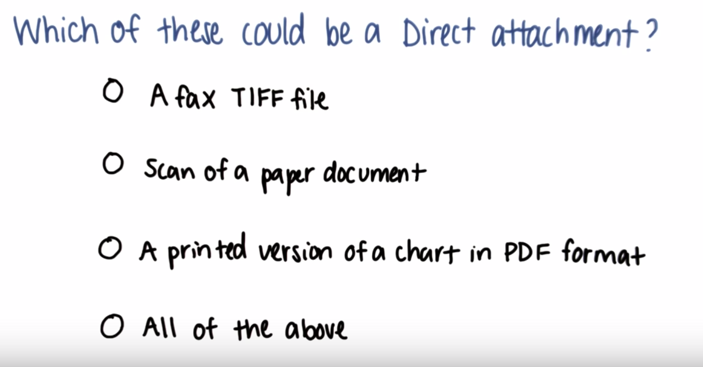 Which of these could be a Direct attachment?
A fax TIFF file
Scan of a paper document
A printed version of a chart in PDF format
All of the above